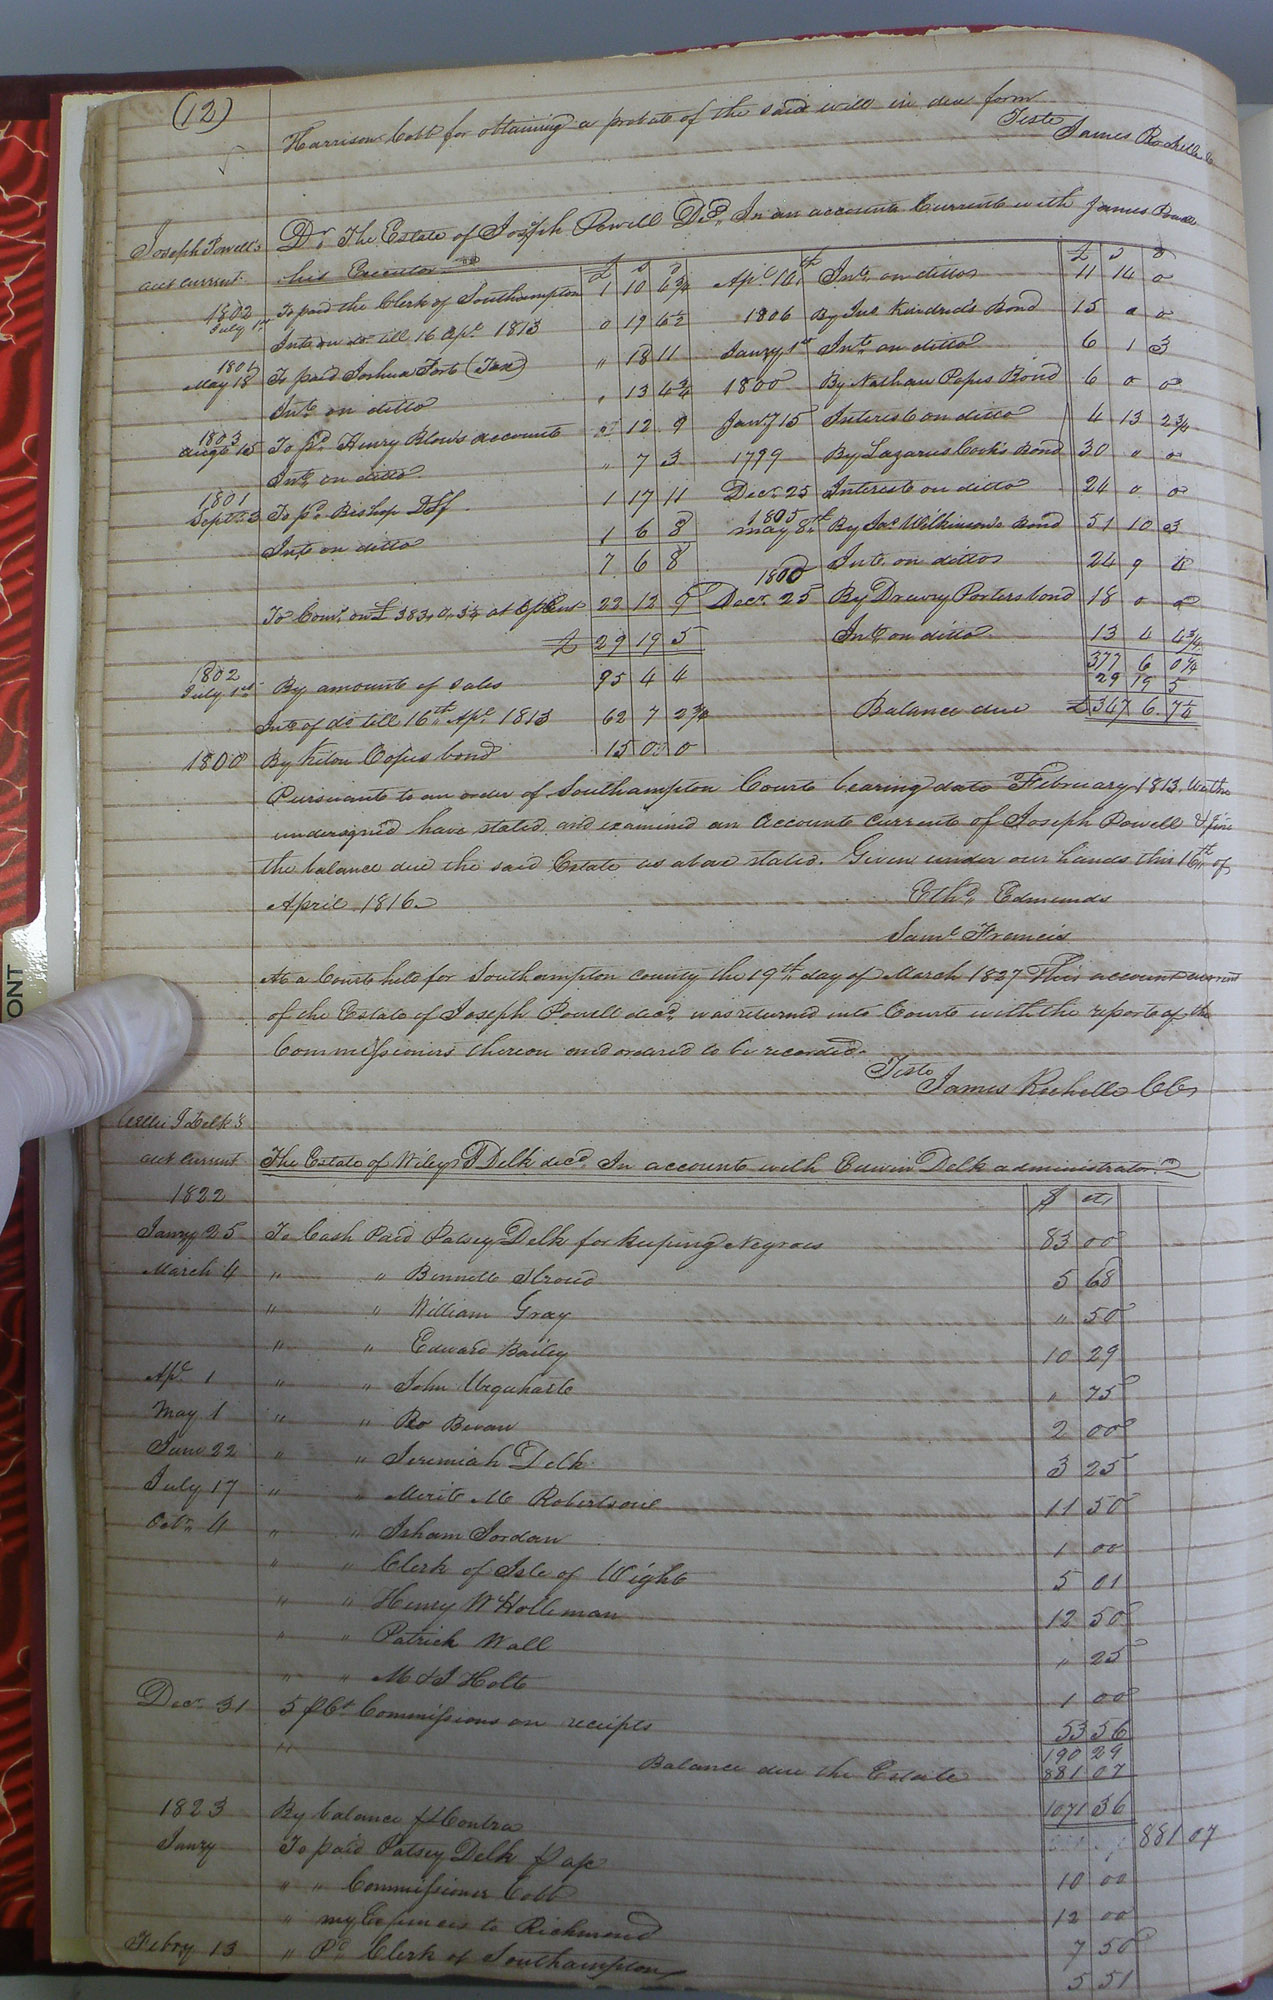 (12)
Harrison Cobb for obtaining a probate of the said will in due form
Teste
James Rochelle C
Joseph Powell's
acct current
Dr. The Estate of Joseph Powell Decd. In an account Current with James Powell
his Executor
£ s d
£ s d
1802
July 1st To paid the Clerk of Southampton 1 10 6 3/4
Int. on do. till 16 Apl. 1813 0 19 6 1/2
1801
May 18 To paid Joshua Fort (Tax) " 18 11
Int. on ditto " 13 4 3/4
1803
Augt 15 To pd. Henry Blow's account 12 9
Int. on ditto " 7 3
1801
Sept. 3 To pd. Bishop DSff 1 17 11
Int. on ditto 1 6 8
7 6 8
To Com. on £ 383, 0, 3 1/4 at 6 p Cent 22 12 9
£ 29 19 5
1802
July 1st By amount of sales 95 4 4
Int. of do till 16th Apl. 1813 62 7 2 3/4
1800 By bond 15 0 0
Apl. 16th Int. on ditto 11 14 0
1806 By Jno. Kindred's Bond 15 0 0
Jany 1st Int. on ditto 6 1 3
1800 By Nathan Popes Bond 6 0 0
Jany 15 Interest on ditto 4 13 2 3/4
1799 By Lazarus Cook's Bond 30 " 0
Decr. 25 Interest on ditto 24 0 0
1805
May 8th By Jas Wilkinson's Bond 51 10 3
Int. on ditto 24 9 4
1800
Decr. 25 By Drewry Porters bond 18 0 0
Int. on ditto 13 4 4 3/4
377 6 0 1/4
29 19 5
Balance due £ 347 6 7 1/4
Pursuant to an order of Southampton Court bearing date February 1813. We the
undersigned have stated and examined an Account Current of Joseph Powell & find
the balance due the said Estate as above stated. Given under our hands this 16th of
April 1816.
Ethd. Edmunds
Saml. Francis
At a Court held for Southampton county the 19th day of March 1827 This account current
of the Estate of Joseph Powell decd. was returned into Court with the report of the
Commissioners thereon and ordered to be recorded.
Teste
James Rochelle CC
J Delk's
acct current
The Estate of Wiley J Delk decd. In account with Edwin Delk administrator
1822 $ cts
Jany 25 To Cash Paid Patsey Delk for keeping Negroes 83 00
March 4 " " Bennett Stroud 5 68
" " William Gray " 50
" " Edward Bailey 10 29
Apl. 1 " " John Urquhart " 75
May 1 " " Ro Bevan 2 00
June 22 " " Jeremiah Delk 3 25
July 17 " " Merit M Robertson 11 50
Octr. 4 " " Isham Jordan 1 00
" " Clerk of Isle of Wight 5 01
" " Henry W Holleman 12 50
" " Patrick Wall " 25
" " M & J Holt 1 00
Decr. 31 5 p Ct. Commissions on receipts 53 56
190 29
" Balance due the Estate 881 07
1071 36
1823 By balance p Contra 881 07
Jany To paid Patsey Delk p a/c 10 00
" " Commissioner Cobb 12 00
" my Expences to Richmond 7 50
Febry 13 " Pd. Clerk of Southampton 5 51
ONT